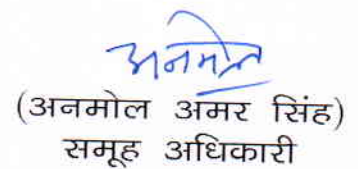 अनमोल
(अनमोल अमर सिंह)
समूह अधिकारी